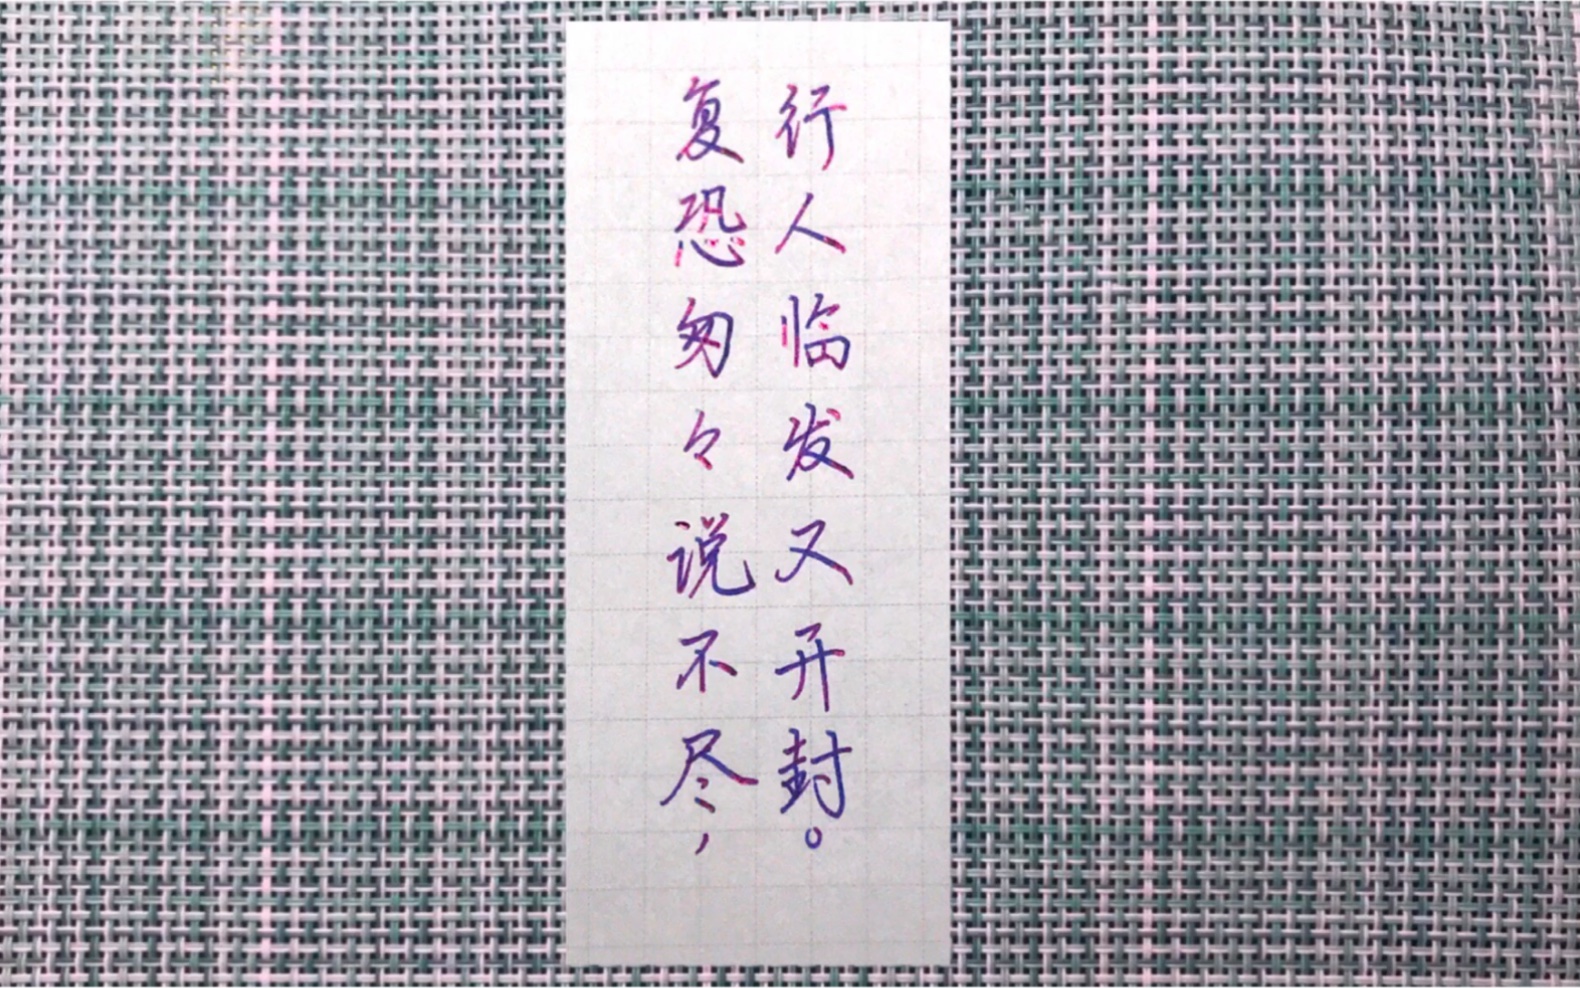 复恐匆々说不尽，
行人临发又开封。